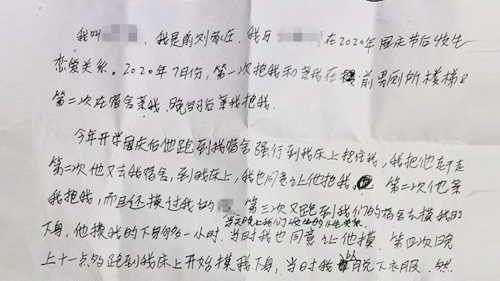 我叫 ，我是前刘家庄，我与 在2020年国庆节后发生
恋爱关系。2020年7月份，第一次抱我和亲我在 前男厕所楼梯口
第二次在宿舍亲我，晚自后亲我抱我。
今年开学国庆后他跑到我宿舍强行到我床上抱住我，我把他赶走
第二次他又去我宿舍，到我床上，我也同意让他抱我， 第二次他亲
我抱我，而且还摸过我的 ，第三次又跑到我们的宿舍去摸我的
下身，他摸我的下身何多一小时，当时我也同意让他摸。第四次晚
上十一点多跑到我床上开始摸我下身，当时我 自己脱下衣服，然